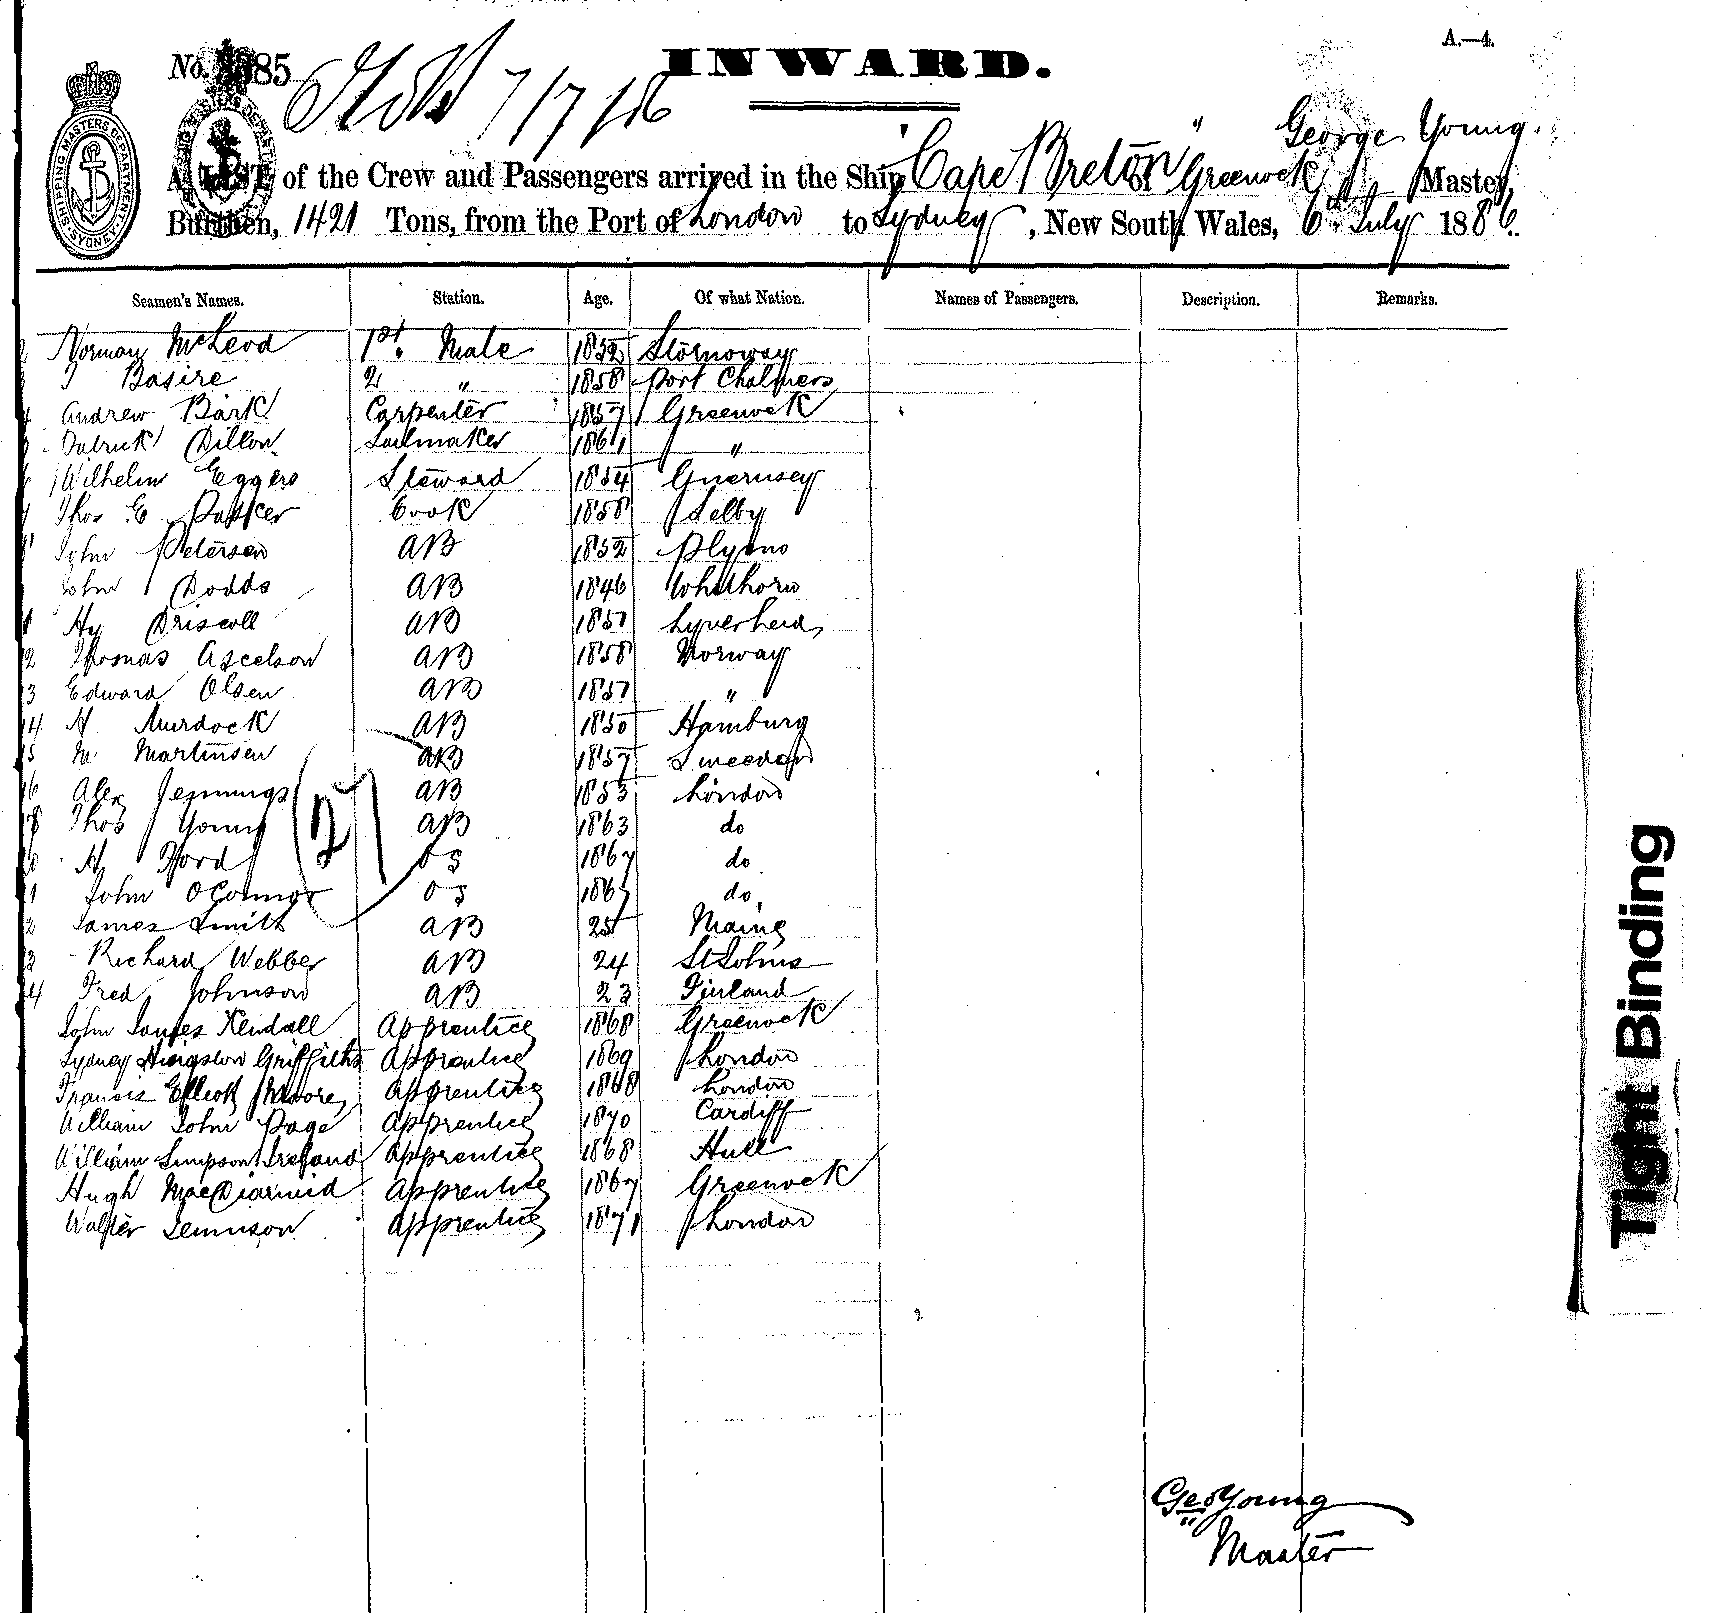 A.—4.
No. 385
7/7/86
INWARD.
SHIPPING MASTERS DEPARTMENT SYDNEY
A LIST of the Crew and Passengers arrived in the Ship "Cape Breton" of Greenock, George Young Master,
Burthen, 1421 Tons, from the Port of London to Sydney, New South Wales, 6th July 1886.
Seamen's Names. Station. Age. Of what Nation. Names of Passengers. Description. Remarks.
Norman McLeod 1st. Mate 1852 Stornoway
Basire 2 " 1858 Port Chalmers
4 Andrew Bark Carpenter 1857 Greenock
Patrick Dillon Sailmaker 1861 "
6 Wilhelm Eggers Steward 1854 Guernsey
Thos E Parker Cook 1858 Selby
8 John Petersen AB 1852
John Dodds AB 1846 Whithorn
Hy Driscoll AB 1851
2 Thomas Ascelson AB 1858 Norway
3 Edward Olsen AB 1851 "
14 H Murdock AB 1850 Hamburg
15 M Martinsen AB 1857 Sweeden
16 Alex Jennings AB 1853 London
18 Thos Young AB 1863 do
H Ford OS 1867 do
1 John OConnor OS 1867 do
2 James Smith AB 25 Maine
3 Richard Webber AB 24 St Johns
4 Fred Johnson AB 23 Finland
John James Kendall Apprentice 1868 Greenock
Sydney Hingston Griffiths Apprentice 1869 London
Francis Elliott Moore Apprentice 1868 London
William John Page Apprentice 1870 Cardiff
William Simpson Ireland Apprentice 1868 Hull
Hugh MacDiarmid Apprentice 1867 Greenock
Walter Tennison Apprentice 1871 London
Geo Young
Master
Tight Binding